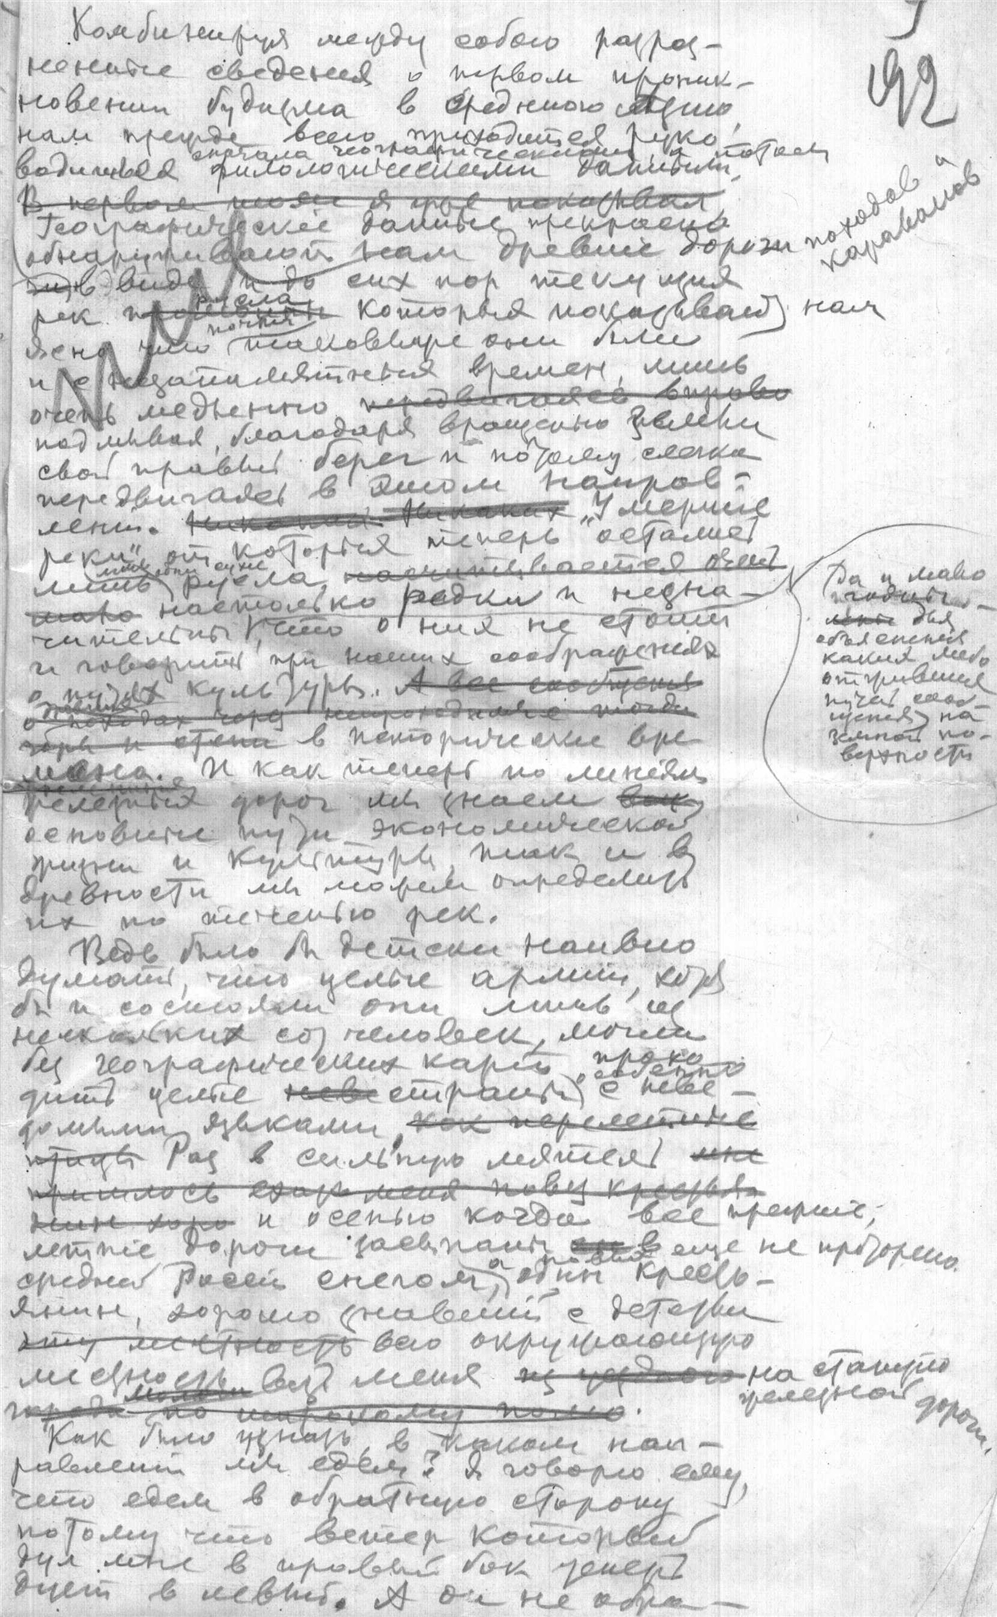 92
Комбинируя между собою разроз-
ненные сведения о первом проник-
новении будизма в среднюю Азию,
нам прежде всего приходится руко-
сначала географическими и потом
водиться филологическими данными.
В первом томе я уже показывал
Географическіе данные прекрасно
обнаруживают нам древніе дороги походов и караванов
в виде и до сих пор текущих
рек русла которыя показывают нам
ясно что таковыми они были
почти
и с незапамятных времен, лишь
очень медленно передвигаясь вправо
подмывая, благодаря вращению Земли
свой правый берег и потому слегка
передвигаясь в этом направ-
лении. Никаких "Умершие
реки" от которых теперь остались
лишь русла, насчитывается очень
мало настолько редки и незна-
чительны, что о них не стоит
и говорить при наших соображениях
о путях культуры. А все сообщения
горы и степи в исторические вре-
мена. И как теперь по линиям
железных дорог мы узнаем
основные пути экономической
жизни и культуры, так и в
древности мы можем определить
их по течению рек.
Да и мало
для
объяснения
каких либо
открывших
путей сооб-
щения на
земной по-
верхности
Ведь было бы детски наивно
думать, что целые армии, хотя
бы и состояли они лишь из
нескольких сот человек, могли
без географических карт прохо-
особенно
дить целые страны с неве-
домыми языками, как перелетные
птицы Раз в сильную мятель мне
пришлось
и осенью когда все прежніе,
летніе дороги засыпаны в еще не проторено.
средней Росеи снегом, а новых один кресть-
янин, хорошо знавший с детства
эту местность всю окружающую
местность вез меня из уездного на станцию железной дороги.
города по широкому полю.
Как было узнать, в каком нап-
равлении мы едем? Я говорю ему,
что едем в обратную сторону
потому что ветер который
дул мне в правый бок теперь
дует в левый. А он не обра-